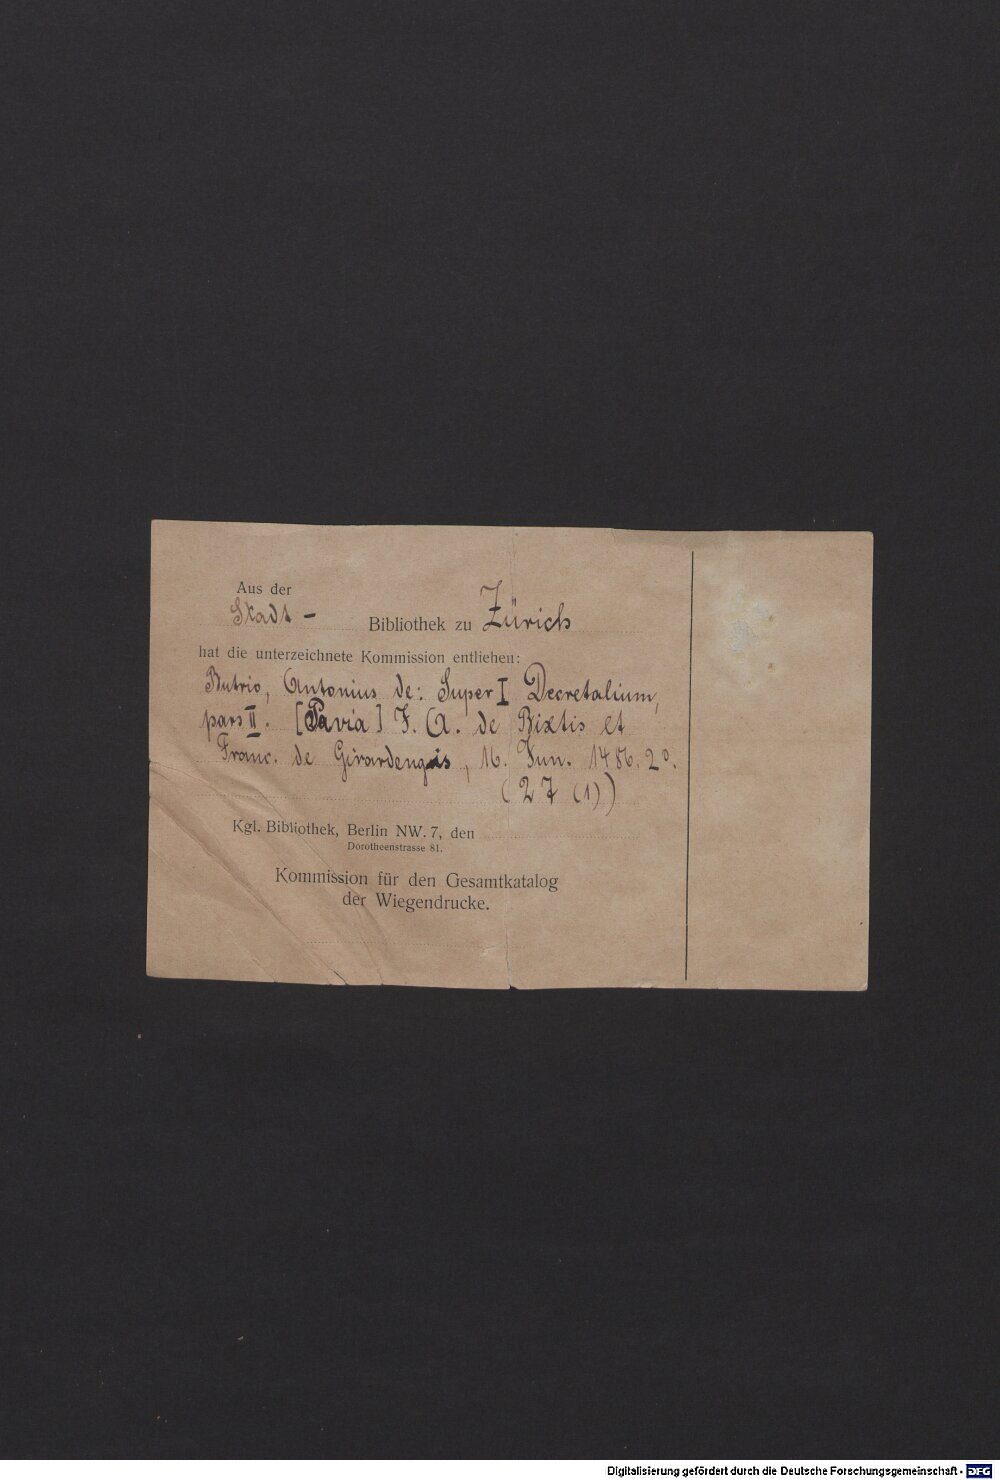 Aus der
Stadt - Bibliothek zu Zürich
hat die unterzeichnete Kommission entliehen:
Butrio, Antonius de: Super I Decretalium,
pars II. [Pavia] J. A. de Bixtis et
Franc. de Girardengis, 16. Jun. 1486. 2°.
(27 (1))
Kgl. Bibliothek, Berlin NW. 7, den
Dorotheenstrasse 81.
Kommission für den Gesamtkatalog
der Wiegendrucke.
Digitalisierung gefördert durch die Deutsche Forschungsgemeinschaft - DFG